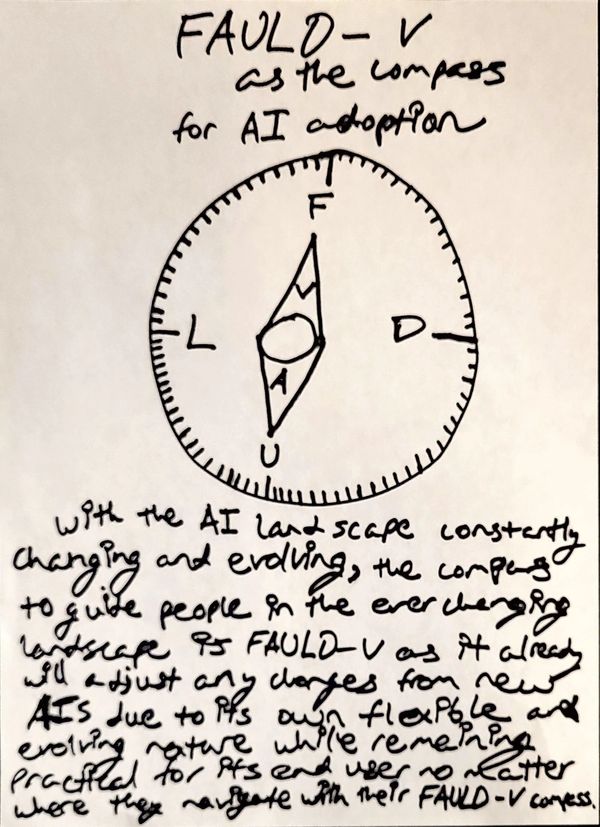 FAULD-V
as the compass
for AI adoption
F
V
L
D
A
U
With the AI landscape constantly
changing and evolving, the compass
to guide people in the ever changing
landscape is FAULD-V as it already
will adjust any changes from new
AIs due to its own flexible and
evolving nature while remaining
practical for its end user no matter
where they navigate with their FAULD-V compass.